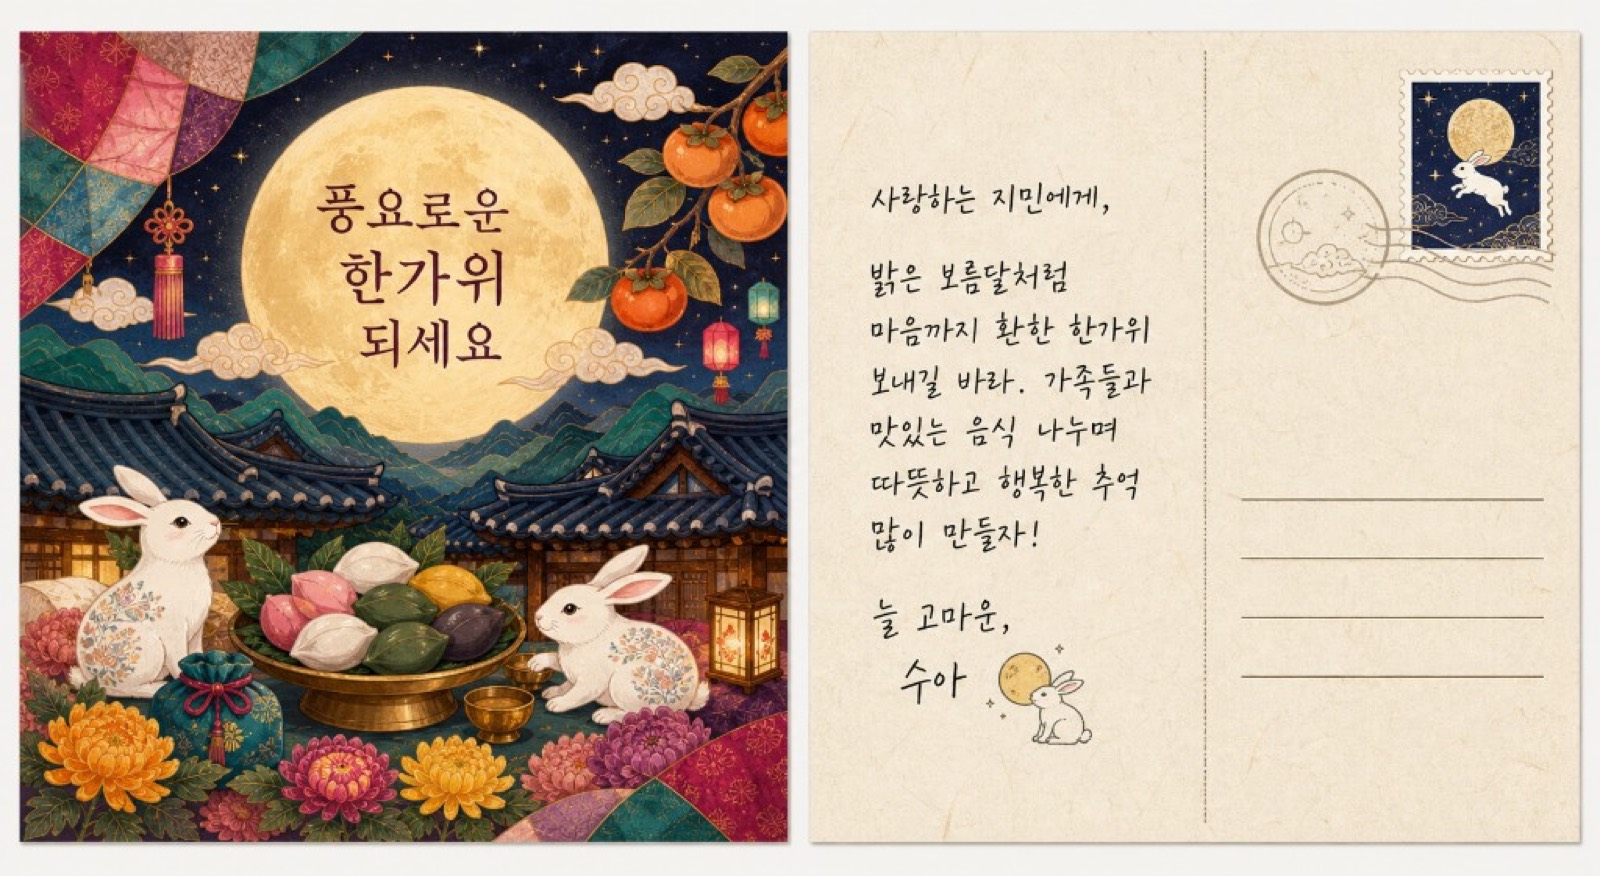 풍요로운
한가위
되세요
사랑하는 지민에게,
밝은 보름달처럼
마음까지 환한 한가위
보내길 바라. 가족들과
맛있는 음식 나누며
따뜻하고 행복한 추억
많이 만들자!
늘 고마운,
수아